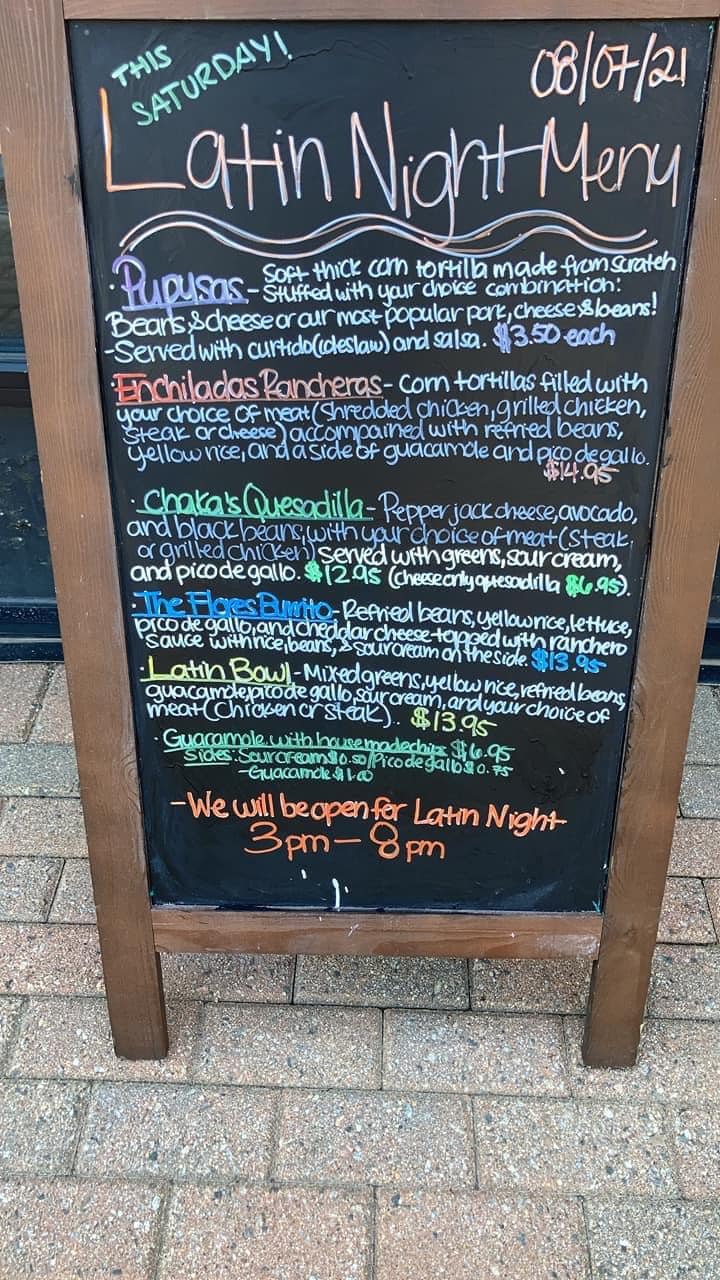 THIS
SATURDAY!
08/07/21
Latin Night Menu
· Pupusas - Soft thick corn tortilla made from scratch
- Stuffed with your choice combination:
Beans & cheese or our most popular pork, cheese & beans!
- Served with curtido (coleslaw) and salsa. $3.50 each
· Enchiladas Rancheras - corn tortillas filled with
your choice of meat (shredded chicken, grilled chicken,
steak or cheese) accompained with refried beans,
yellow rice, and a side of guacamole and pico de gallo.
$14.95
· Chaka's Quesadilla - Pepper jack cheese, avocado,
and black beans, with your choice of meat (steak
or grilled chicken) served with greens, sour cream,
and pico de gallo. $12.95 (cheese only quesadrilla $6.95).
· The Flores Burrito - Refried beans, yellow rice, lettuce,
pico de gallo, and cheddar cheese topped with ranchero
sauce with rice, beans, & sour cream on the side. $13.95
· Latin Bowl - Mixed greens, yellow rice, refried beans,
guacamole, pico de gallo, sour cream, and your choice of
meat (Chicken or steak).. $13.95
Guacamole with housemade chips $6.95
sides: Sour cream $0.50/Pico de gallo $0.75
- Guacamole $1.00
- We will be open for Latin Night
3pm - 8pm